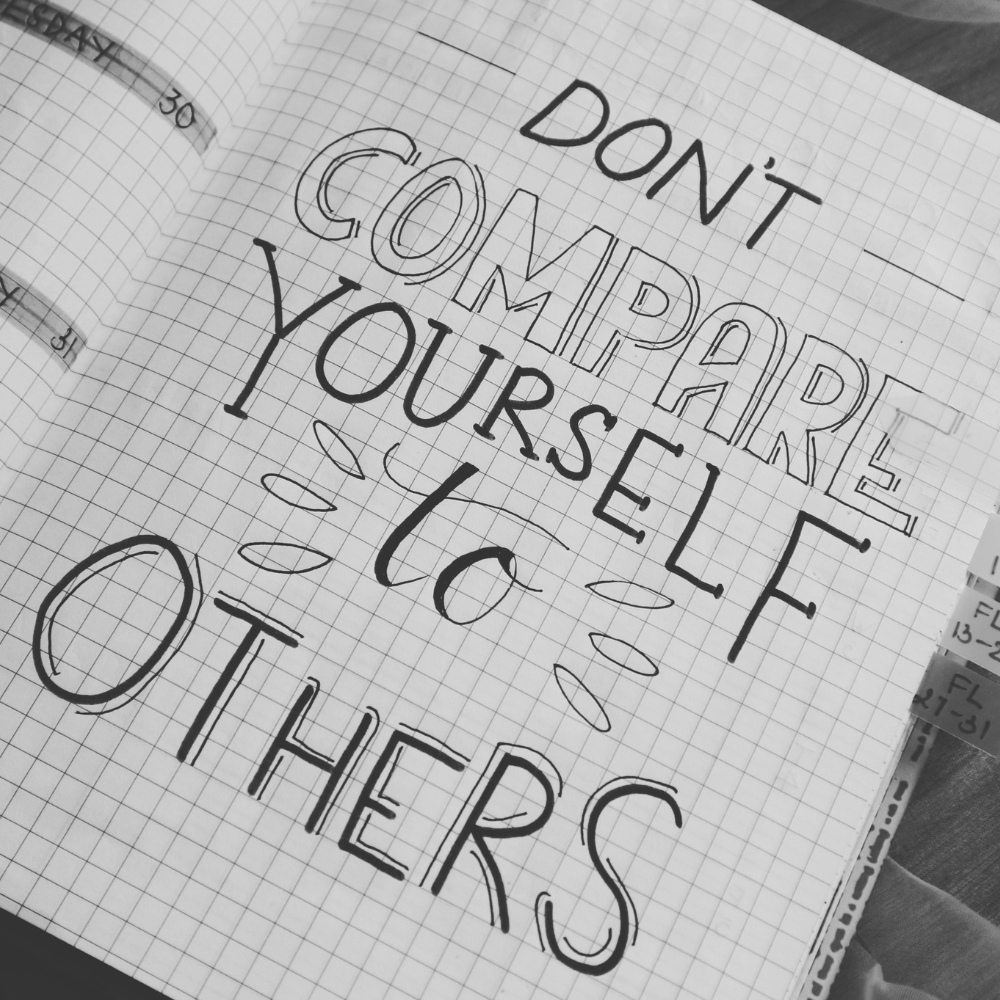 ESDAY
30
Y
31
DON'T
COMPARE
YOURSELF
to
OTHERS
FL
13-2
FL
27-31